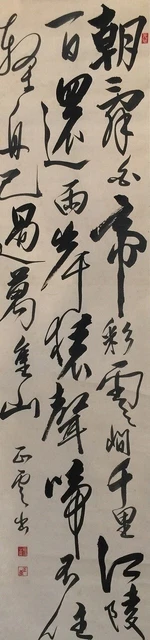 朝辭白帝彩雲間千里江陵
一日還兩岸猿聲啼不住
輕舟已過萬重山 正雲書